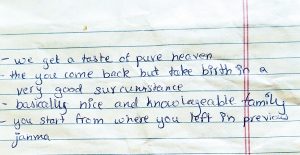 - we get a taste of pure heaven
- the you come back but take birth in a
very good surcumnstance
- basically nice and knowlageable family
- you start from where you left in preview
janma